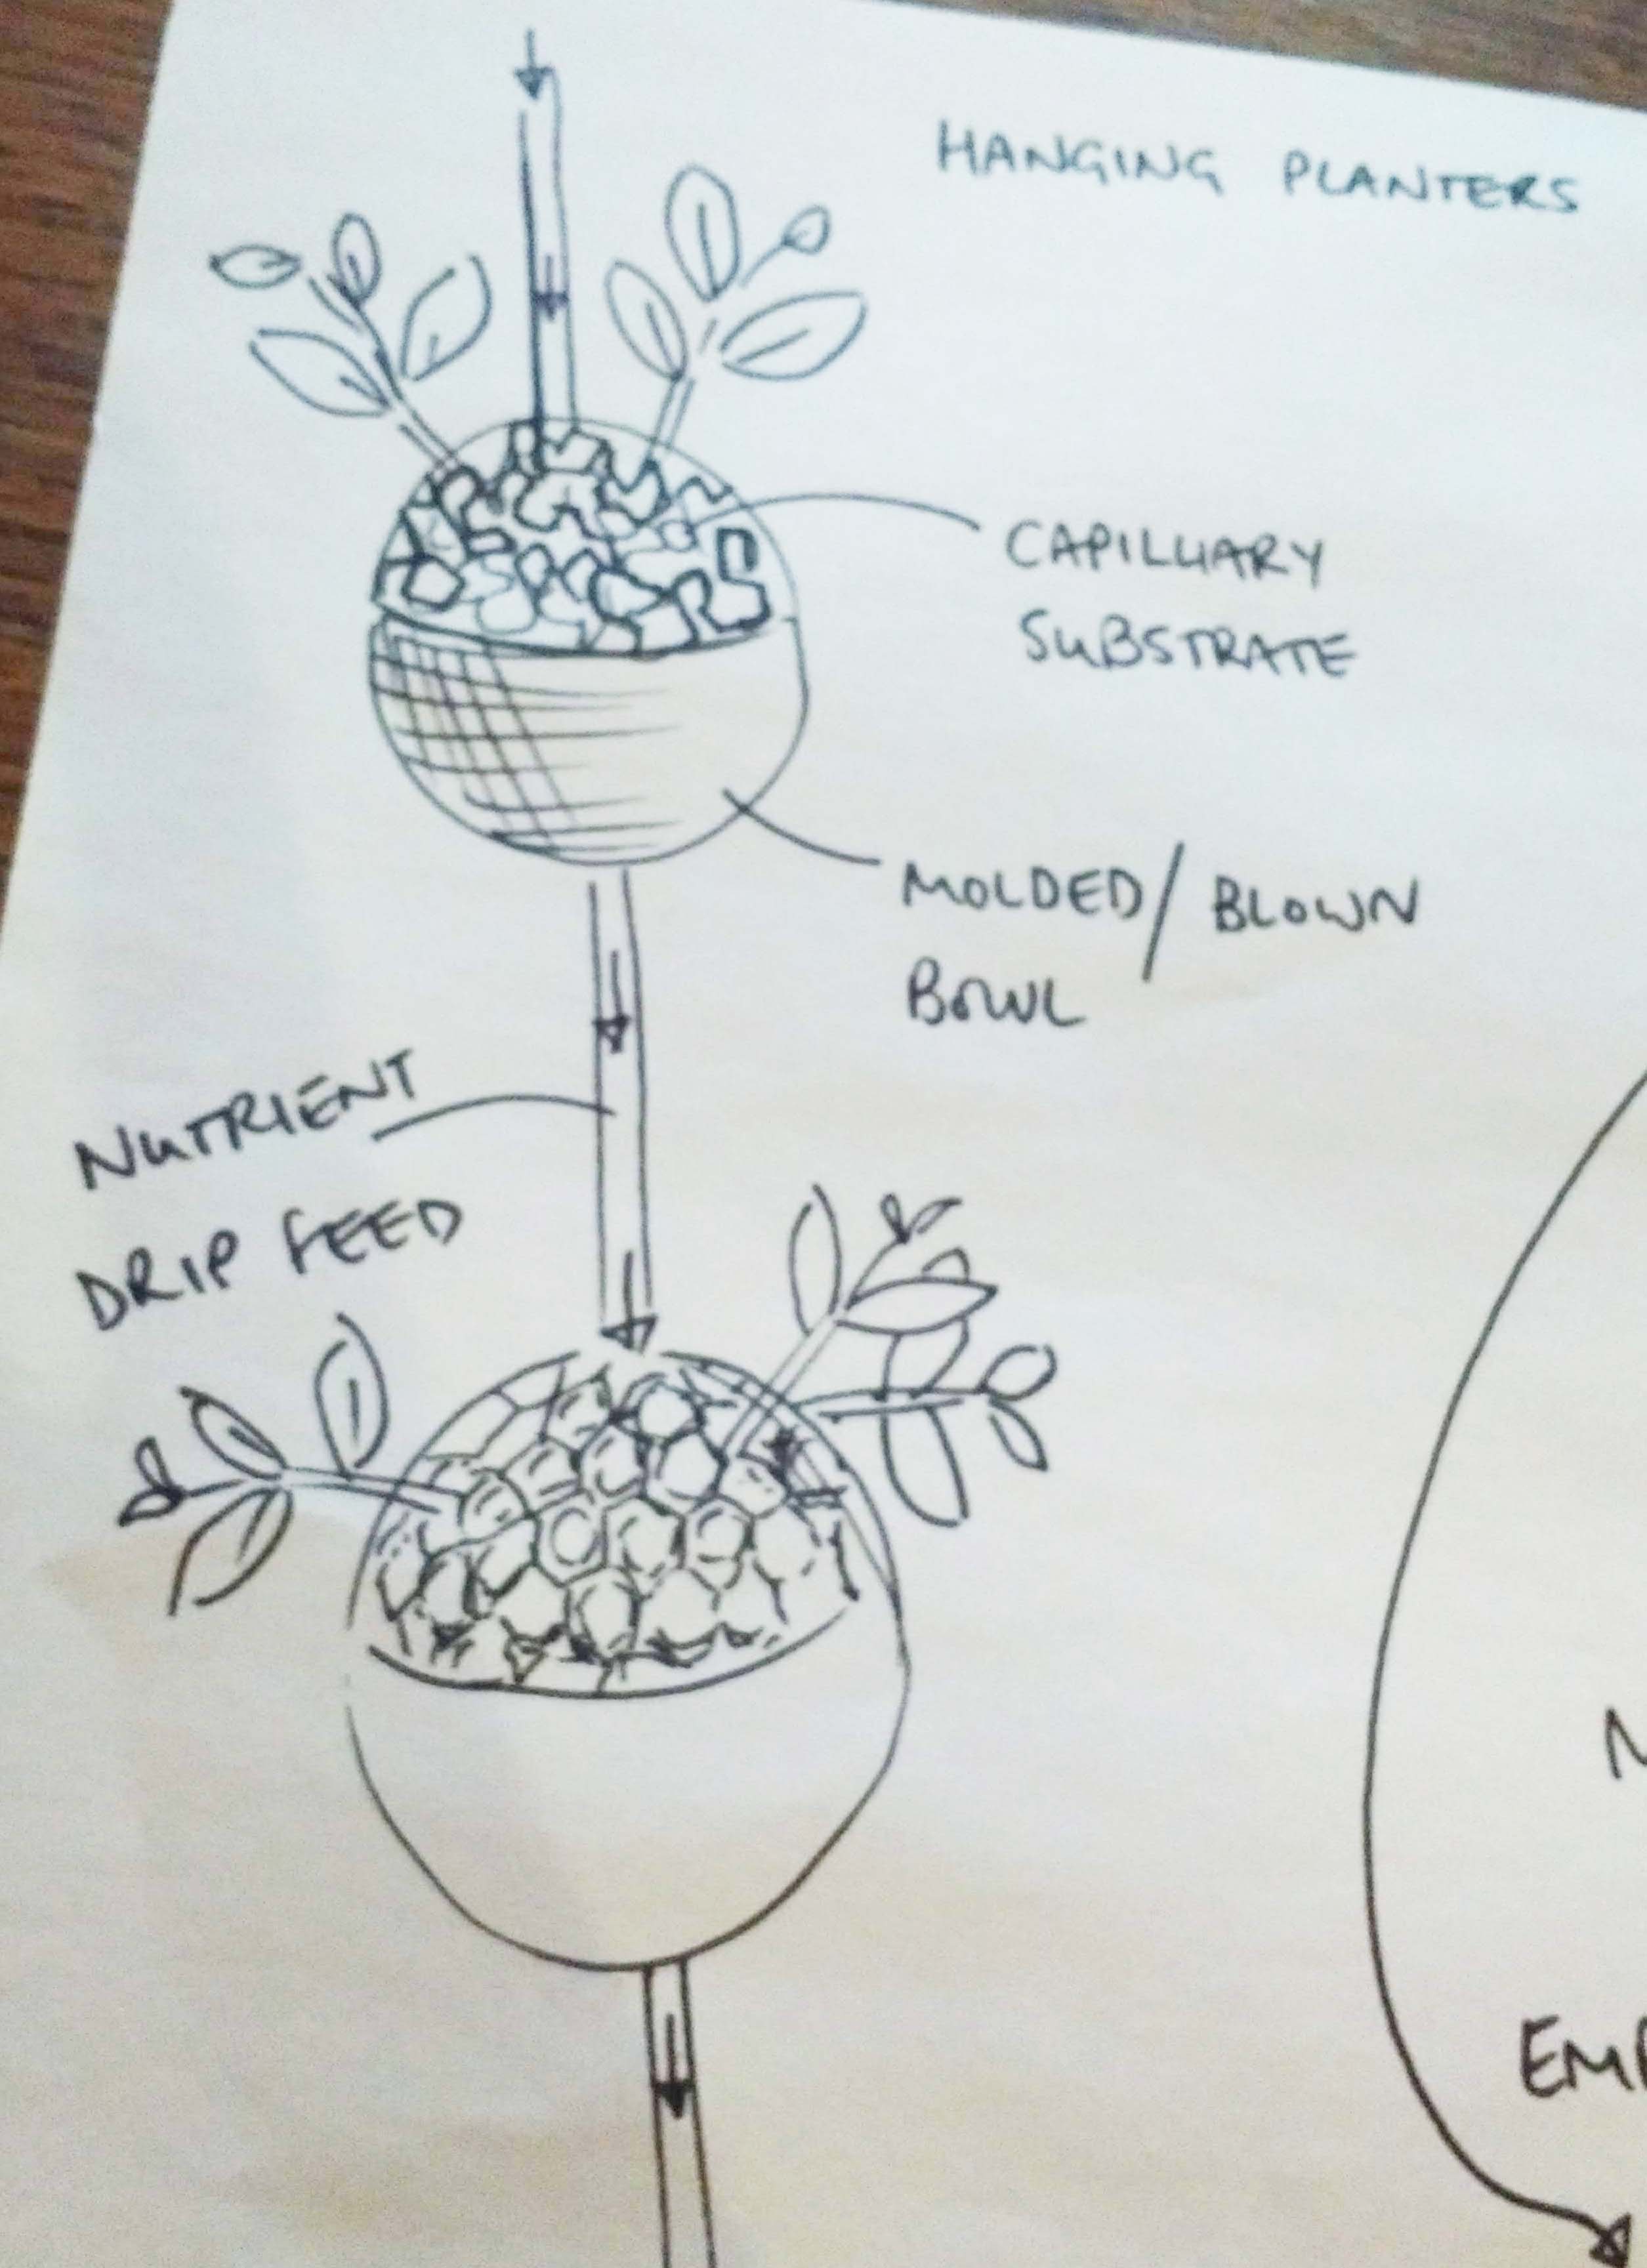 HANGING PLANTERS
CAPILLIARY
SUBSTRATE
MOLDED/BLOWN
BOWL
NUTRIENT
DRIP FEED